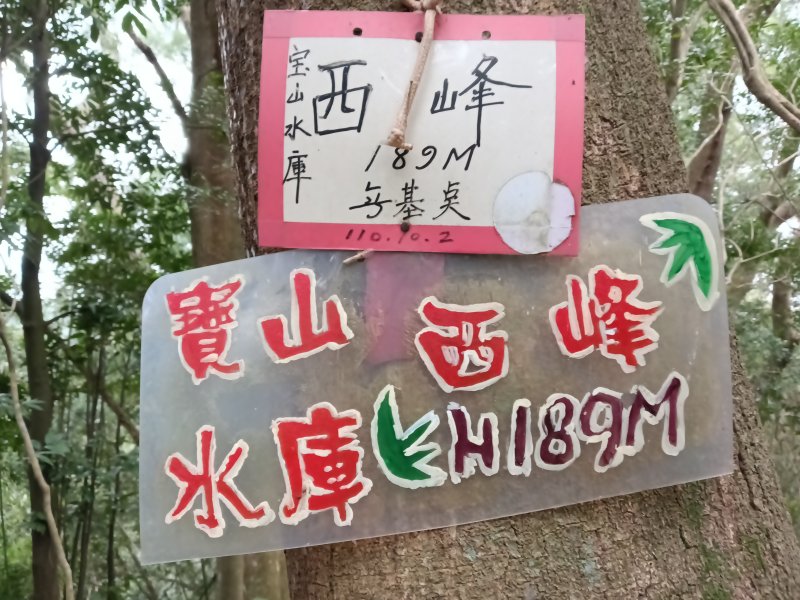 宝山水庫
西峰
189M
无基点
110.10.2
寶山西峰
水庫H189M